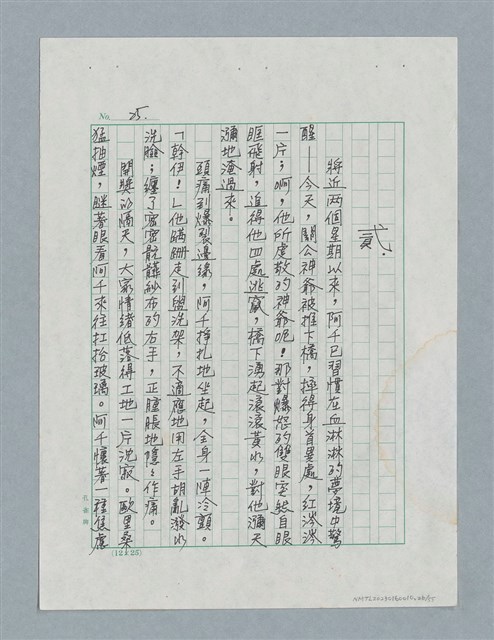 No. 25.
貳.
將近兩個星期以來，阿千已習慣在血淋淋的夢境中驚
醒——今天，關公神爺被推下橋，摔得身首異處，紅涔涔
一片；啊，他所虔敬的神爺呢！那對爆怒的雙眼突然自眼
眶飛射，追得他四處逃竄，橋下湧起滾滾黃水，對他瀰天
瀰地淹過來。
頭痛到爆裂邊緣，阿千掙扎地坐起，全身一陣冷顫。
「幹伊！」他蹣跚走到盥洗架，不適應地用左手胡亂潑水
洗臉；纏了密密骯髒紗布的右手，正腫脹地隱隱作痛。
開獎以隔天，大家情緒低落得工地一片沈寂。歐里桑
猛抽煙，瞇著眼看阿千來往扛抬玻璃。阿千懷著一種焦慮
(12×25)